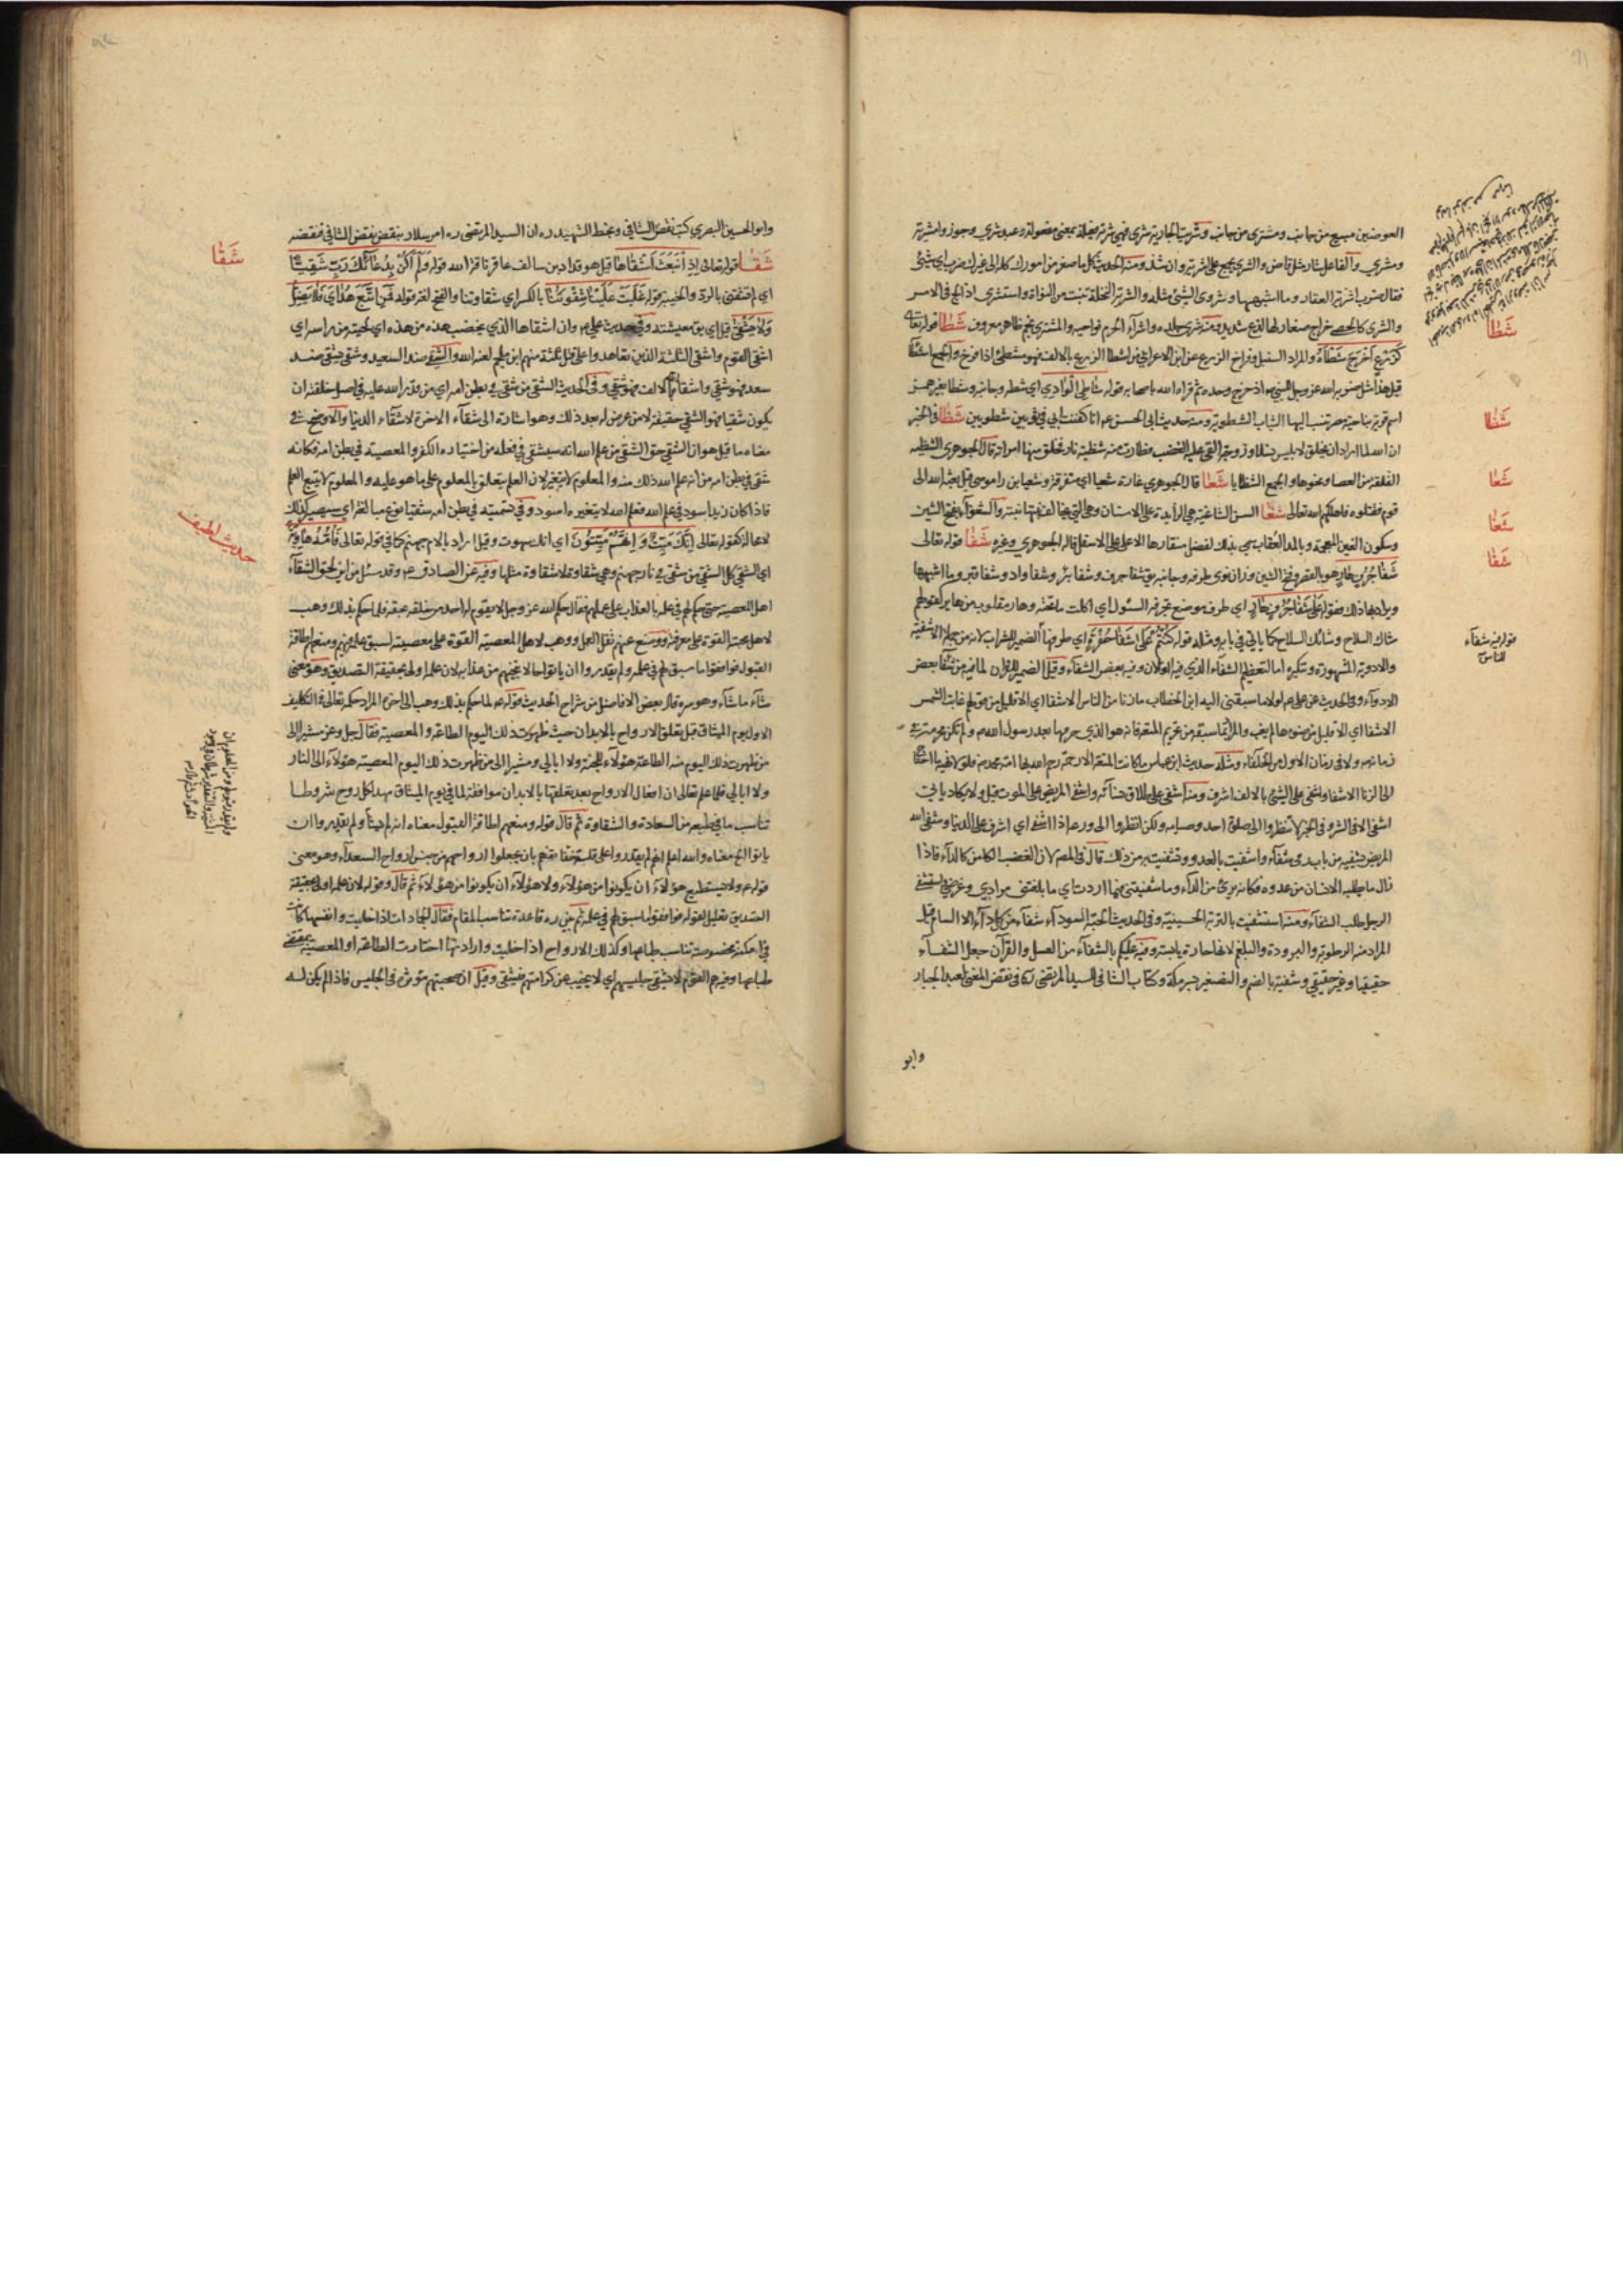 العوضين مبيع من جانب ومشترى من جانب وشريت الجارية شرى فهي شرية فعيلة بمعنى مفعولة وعبد شري ويجوز
ومشري والفاعل شار مثل قاض والشرى يجمع على اشرية وان شذ ومنه الحديث كل ما صغر من امورك كله الى غيرك
فقال ضرب اشرية العقار وما اشبهها وشروى الشئ مثله والشرية النخلة تنبت من النواة واستشرى اذا لج في الامر
والشرى كالحصى خراج صغار لها لذع شديد ومنه شري جلده واشراء الحرم نواحيه والمشتري نجم ظاهر معروف شَطَا قوله تعالى
كَزَرْعٍ أَخْرَجَ شَطْأَهُ والمراد السنبل وفراخ الزرع عن ابن الاعرابي من اشطا الزرع بالالف فهو مشطئ اذا فرخ والجمع اشطاء
قيل هذا مثل ضربه الله عز وجل للنبي اذ خرج وحده ثم قواه الله باصحابه قوله شَاطِئِ الْوَادِي اي شطه وجانبه وشطا بغير همز
اسم قرية بناحية مصر تنسب اليها الثياب الشطوية ومنه حديث ابي الحسن انا كفنت ابي في ثوبين شطويين شَظَا في الخبر
ان الله لما اراد ان يخلق لابليس نسلا وزوجة القى عليه الغضب فطارت منه شظية نار فخلق منها امراته قال الجوهري الشظية
الفلقة من العصا ونحوها والجمع الشظايا شَعَا قال الجوهري غارة شعواء اي متفرقة وشعيا بن راموسى قيل بعثه الله الى
قوم فقتلوه فاهلكهم الله تعالى شَغَا السن الشاغية هي الزايدة على الاسنان وهي التي تخالف نبتتها نبتة والشغواء بفتح الشين
وسكون الغين المعجمة وبالمد العقاب سمي بذلك لفضل منقارها الاعلى على الاسفل قاله الجوهري وغيره شَفَا قوله تعالى
شَفَا جُرُفٍ هَارٍ هو بالقصر وفتح الشين وزان نوى طرفه وجانبه يق شفا جرف وشفا بئر وشفا واد وشفا قبر وما اشبهها
ويراد بها ذلك فقوله عَلَى شَفَا جُرُفٍ هَارٍ اي طرف موضع تجرفه السيول اي اكلت ما تحته وهار مقلوب من هاير كقولهم
شاك السلاح وشائك السلاح كما ياتي في بابه ومثله قوله كُنْتُمْ عَلَى شَفَا حُفْرَةٍ اي طرفها الضمير للشراب لانه من جملة الاشفية
والادوية المشهورة وتنكيره اما لتعظيم الشفاء الذي فيه او لان فيه بعض الشفاء وقيل الضمير للقران لما فيه من شفا بعض
الادواء وفي الحديث عن علي لولا ما سبقني اليه ابن الخطاب ما زنا من الناس الا شفا اي الا قليل من قولهم غابت الشمس
الا شفا اي الا قليل من ضوءها لم يغب
زمانه ولا في زمان الاول من الخلفاء ومثله حديث ابن عباس ما كانت المتعة الا رحمة رحم الله بها امة محمد فلو لا نهيه ما احتاج
الى الزنا الا شفا واشفى على الشئ بالالف اشرف ومنه اشفى على طلاق نسائه واشفى المريض على الموت قيل ولا يكاد ياتي
اشفى الا في الشر وفي الخبر لا تنظروا الى صلوة احد وصيامه ولكن انظروا الى ورعه اذا اشفى اي اشرف على الدنيا وشفى الله
المريض يشفيه من باب رمى شفاء واشفيت بالعدو وتشفيت به من ذلك قال في المصـ لان الغضب الكامن كالداء فاذا
زال ما يطلبه الانسان من عدوه فكانه برئ من الداء وما شفيتني فيما اردت اي ما بلغتني مرادي وغرضي
الرجل طلب الشفاء ومنه استشفيت بالتربة الحسينية وفي الحديث الحبة السوداء شفاء من كل داء الا السام قيل
المراد منه الرطوبة والبرودة والبلغم لانها حارة يابسة وفيه عليكم بالشفاء من العسل والقرآن جعل الشفاء
حقيقيا وغير حقيقي وشفية بالضم والتصغير بئر مكة وكتاب الشافي للسيد المرتضى ره في نقض المغني لعبد الجبار
وابو
شَطَا
شَظَا
شَعَا
شَغَا
شَفَا
قوله فيه شفاء
للناس
وابو الحسين البصري كتب نقض الشافي وبخط الشهيد ره ان السيد المرتضى ره امر سلار بنقض نقض الشافي فنقضه
شَقَا قوله تعالى إِذِ انْبَعَثَ أَشْقَاهَا قيل هو قدار بن سالف عاقر ناقة الله قوله وَلَمْ أَكُنْ بِدُعَائِكَ رَبِّ شَقِيًّا
اي لم تشقني بالرد والخيبة قوله غَلَبَتْ عَلَيْنَا شِقْوَتُنَا بالكسر اي شقاوتنا والفتح لغة قوله فَمَنِ اتَّبَعَ هُدَايَ فَلَا يَضِلُّ
وَلَا يَشْقَى قيل اي يق معيشته وفي حديث علي وان اشقاها الذي يخضب هذه من هذه اي لحيته من راسه اي
اشقى القوم واشقى الثلثة الذين تعاهدوا على قتل ثلثة منهم ابن ملجم لعنه الله والشقي ضد السعيد وشقى يشقى ضد
سعد فهو شقي واشقاه الله بالالف فهو شقي وفي الحديث الشقي من شقى في بطن امه اي من قدر الله عليه في اصل خلقته ان
يكون شقيا فهو الشقي حقيقة لا من عرض له بعد ذلك وهو اشارة الى شقاء الاخرة لا شقاء الدنيا والاوضح في
معناه ما قيل هو ان الشقي حق الشقي من علم الله انه سيشقى في فعله من اختياره الكفر والمعصية في بطن امه فكانه
شقي في بطن امه من انه علم الله ذلك منه والمعلوم لا يتغير لان العلم يتعلق بالمعلوم على ما هو عليه والمعلوم لا يتبع العلم
فاذا كان زيد اسود في علم الله فعلم الله لا يتغيره اسود وفي تسميته في بطن امه شقيا نوع مبالغة اي سيصير كذلك
لا محالة كقوله تعالى إِنَّكَ مَيِّتٌ وَإِنَّهُمْ مَيِّتُونَ اي انك ستموت وقيل اراد بالام جهنم كما في قوله تعالى فَأُمُّهُ هَاوِيَةٌ
اي الشقي كل الشقي من شقي في نار جهنم وهي شقاوة لا شقاوة مثلها وفيه عن الصادق ع وقد سئل من اين لحق الشقاء
اهل المعصية حتى حكم لهم في علمه بالعذاب على عملهم فقال حكم الله عز وجل لا يقوم له احد من خلقه بحقه فلما حكم بذلك وهب
لاهل محبته القوة على معرفته ووضع عنهم ثقل العمل ووهب لاهل المعصية القوة على معصيته لسبق علمه فيهم ومنعهم اطاقة
القبول فوافقوا ما سبق لهم في علمه ولم يقدروا ان ياتوا حالا تنجيهم من عذابه لان علمه اولى بحقيقة التصديق وهو معنى
شاء ما شاء وهو سره قال بعض الافاضل من شراح الحديث قوله ع لما حكم بذلك وهب الى اخره المراد حكمه تعالى في التكليف
الاول يوم الميثاق قبل تعلق الارواح بالابدان حيث ظهرت ذلك اليوم الطاعة والمعصية فقال جل وعز مشيرا الى
من ظهرت ذلك اليوم منه الطاعة هؤلاء للجنة ولا ابالي ومشيرا الى من ظهرت ذلك اليوم المعصية هؤلاء الى النار
ولا ابالي فلما علم تعالى ان افعال الارواح بعد تعلقها بالابدان موافقة لما في يوم الميثاق مهد لكل روح شروطا
تناسب ما في طبعه من السعادة والشقاوة ثم قال قوله ومنعهم اطاقة القبول معناه انه لم يشأ ولم يقدر وان
ياتوا الخ معناه والله اعلم انهم لم يقدروا على قلب حقايقهم بان يجعلوا ارواحهم من جنس ارواح السعداء وهو معنى
قوله ع ولا يستطيع هؤلاء ان يكونوا من هؤلاء ولا هؤلاء ان يكونوا من هؤلاء ثم قال وقوله لان علمه اولى بحقيقة
التصديق تعليل لقوله فوافقوا ما سبق لهم في علمه ثم بين ره قاعدة تناسب المقام فقال الجمادات اذا خليت وانفسها كانت
في امكنة مخصوصة تناسب طباعها وكذلك الارواح اذا خليت وارادتها اختارت الطاعة او المعصية بمقتضى
طباعها وفيه هم القوم لا يشقى جليسهم اي لا يخيب عن كرامتهم فيشقى وقيل ان صحبتهم مؤثرة في الجليس فاذا لم يكن له
شَقَا
حديث لطيف